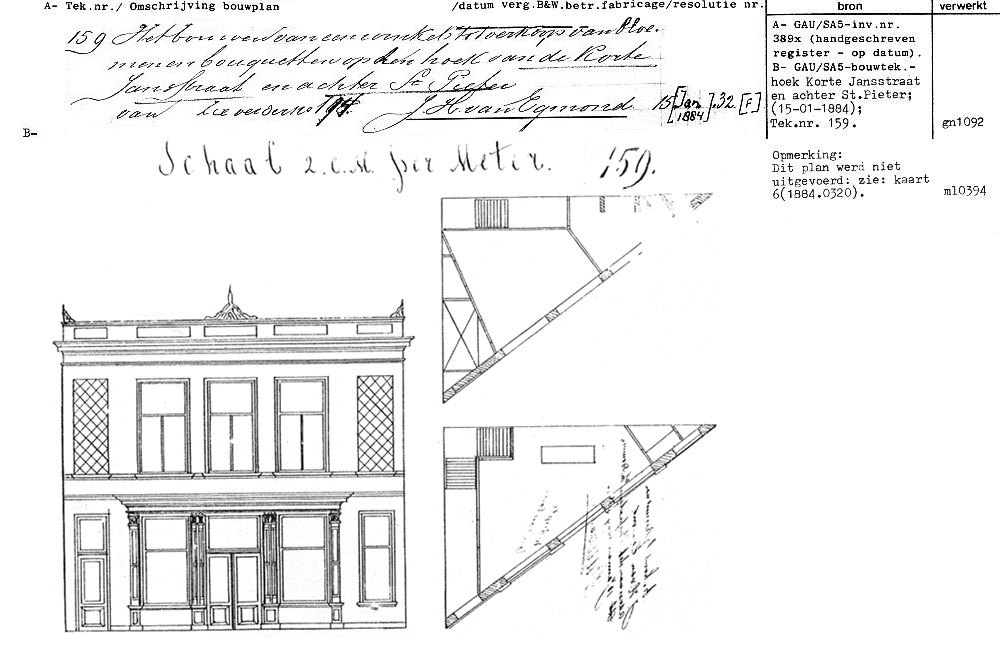 A- Tek.nr./ Omschrijving bouwplan /datum verg.B&W.betr.fabricage/resolutie nr. bron verwerkt
159 Het bouwen van een winkel tot verkoop van bloe-
men en bouquetten op den hoek van de Korte
Jansstraat en achter St Pieter
van J.H. van Egmond 15 [Jan 1884].32 [F]
A- GAU/SA5-inv.nr.
389x (handgeschreven
register - op datum).
B- GAU/SA5-bouwtek.-
hoek Korte Jansstraat
en achter St.Pieter;
(15-01-1884);
Tek.nr. 159. gn1092
B-
Opmerking:
Dit plan werd niet
uitgevoerd: zie: kaart
6(1884.0320). ml0394
Schaal 2.c.M. per Meter. 159.